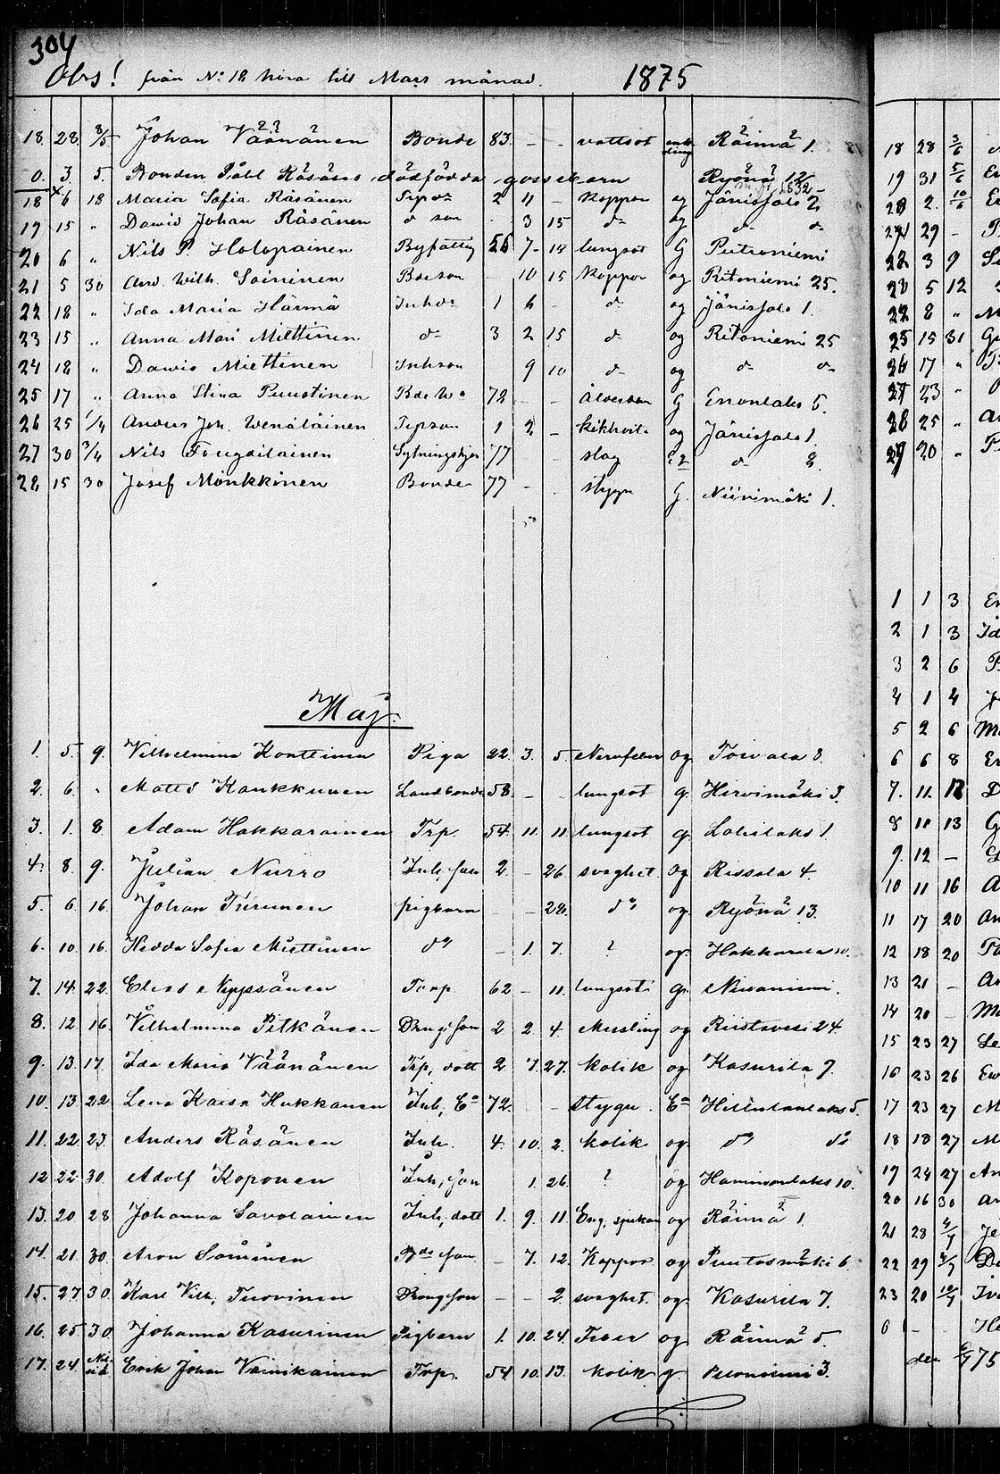 304
Obs! från No 18 höra till Mars månad. 1875
18. 28. 3/5 Johan Väänänen Bonde 83. - - vattsot Räimä 1.
0. 3. 5. Bonden Påhl Räsänens dödfödda gossebarn Ryönä 12
18 6 18 Maria Sofia Räsänen 2 11 - Koppor og Jänissalo 2
19 15 " Dawid Johan Räsänen d son 3 15 d og d d
20 6 " Nils P. Holopainen Byfattig 56 7 - 14 lungsot G Putroniemi
21 5 30 And. Wilh. Soininen Bdeson 10 15 Koppor og Ritoniemi 25.
22 18 " Ida Maria Härmä Inhdr 1 6 - d og Jänissalo 1.
23 15 " Anna Mari Miettinen d 3 2 15 d og Ritoniemi 25
24 18 " Dawid Miettinen Inhson 9 10 d og d d
25 17 " Anna Stina Puustinen Bde 72 - - Ålderdom G Enonlaks 5.
26 25 1/4 Anders Joh. Wenäläinen Trpson 1 2 - kikhosta og Jänissalo 1.
27 30 3/4 Nils Sytningshjon 77 - - slag d 2.
28 15 30 Josef Mönkkönen Bonde 77 - - stygn G. Niinimäki 1.
Maj.
1. 5. 9. Vilhelmina Konttinen Piga 22. 3. 5. Nervfeber og Toivala 8.
2. 6. " Matts Kaukkunen Landbonde 58. - - lungsot g. Hirvimäki 3.
3. 1. 8. Adam Hakkarainen Trp. 54. 11. 11 lungsot g. Lahilaks 1.
4. 8. 9. Julian Nurro Inh, son 2. - 26 svaghet og Rissala 4.
5. 6. 16. Johan Turunen pigbarn - - 28. do og Ryönä 13.
6. 10. 16. Hedda Sofia Miettinen do - 1. 7. ? og Hakkarala 10.
7. 14. 22. Elias Nyyssänen Torp. 62 - 11. lungsot g.
8. 12 16. Vilhelmina Pitkänen 2 2 4 Messling og Riistavesi 24.
9. 13. 17. Ida Maria Väänänen Trp, dott 2 7. 27. kolik og Kasurila 7.
10. 13 22 Lena Kaisa Hukkanen Inh, Ea 72. - - stygn. Ea 5.
11. 22 23. Anders Räsänen Inh. 4. 10. 2. kolik og do do
12 22 30. Adolf Koponen Inh, son 1. 26. ? og Haminanlaks 10.
13. 20 28 Johanna Savolainen Inh, dott 1. 9. 11 Eng. sjukan og Räimä 1.
14. 21. 30. Aron Soininen Bde son - 7. 12. Koppor og Puutosmäki 6
15. 27 30. Karl Vilh. Tuovinen Drengson - - 2 svaghet. og. Kasurila 7.
16. 25 30. Johanna Kasurinen Pigbarn 1. 10. 24. Feber og Räimä 5.
17. 24 Erik Johan Vainikainen Trp. 54 10. 13. kolik g 3.
18 28 3/6
19 31 5/6
20 2. 10/6
21 29 -
22 3 9
23 5 12
22 8 "
25 15 31
26 17 "
27 23 "
28 25 "
29 20 "
1 1 3
2 1 3
3 2 6
4 1 4
5 2 6
6 6 8
7. 11. 12
8 11 13
9. 12 -
10 11 16
11 17 20
12 18 20
13 21 -
14 20 -
15 23 27
16 23 26
17 23 27
18 18 27
19 24 27
20 16 30
21 28 4/7
22 29 4/7
23 20
0 - -
75